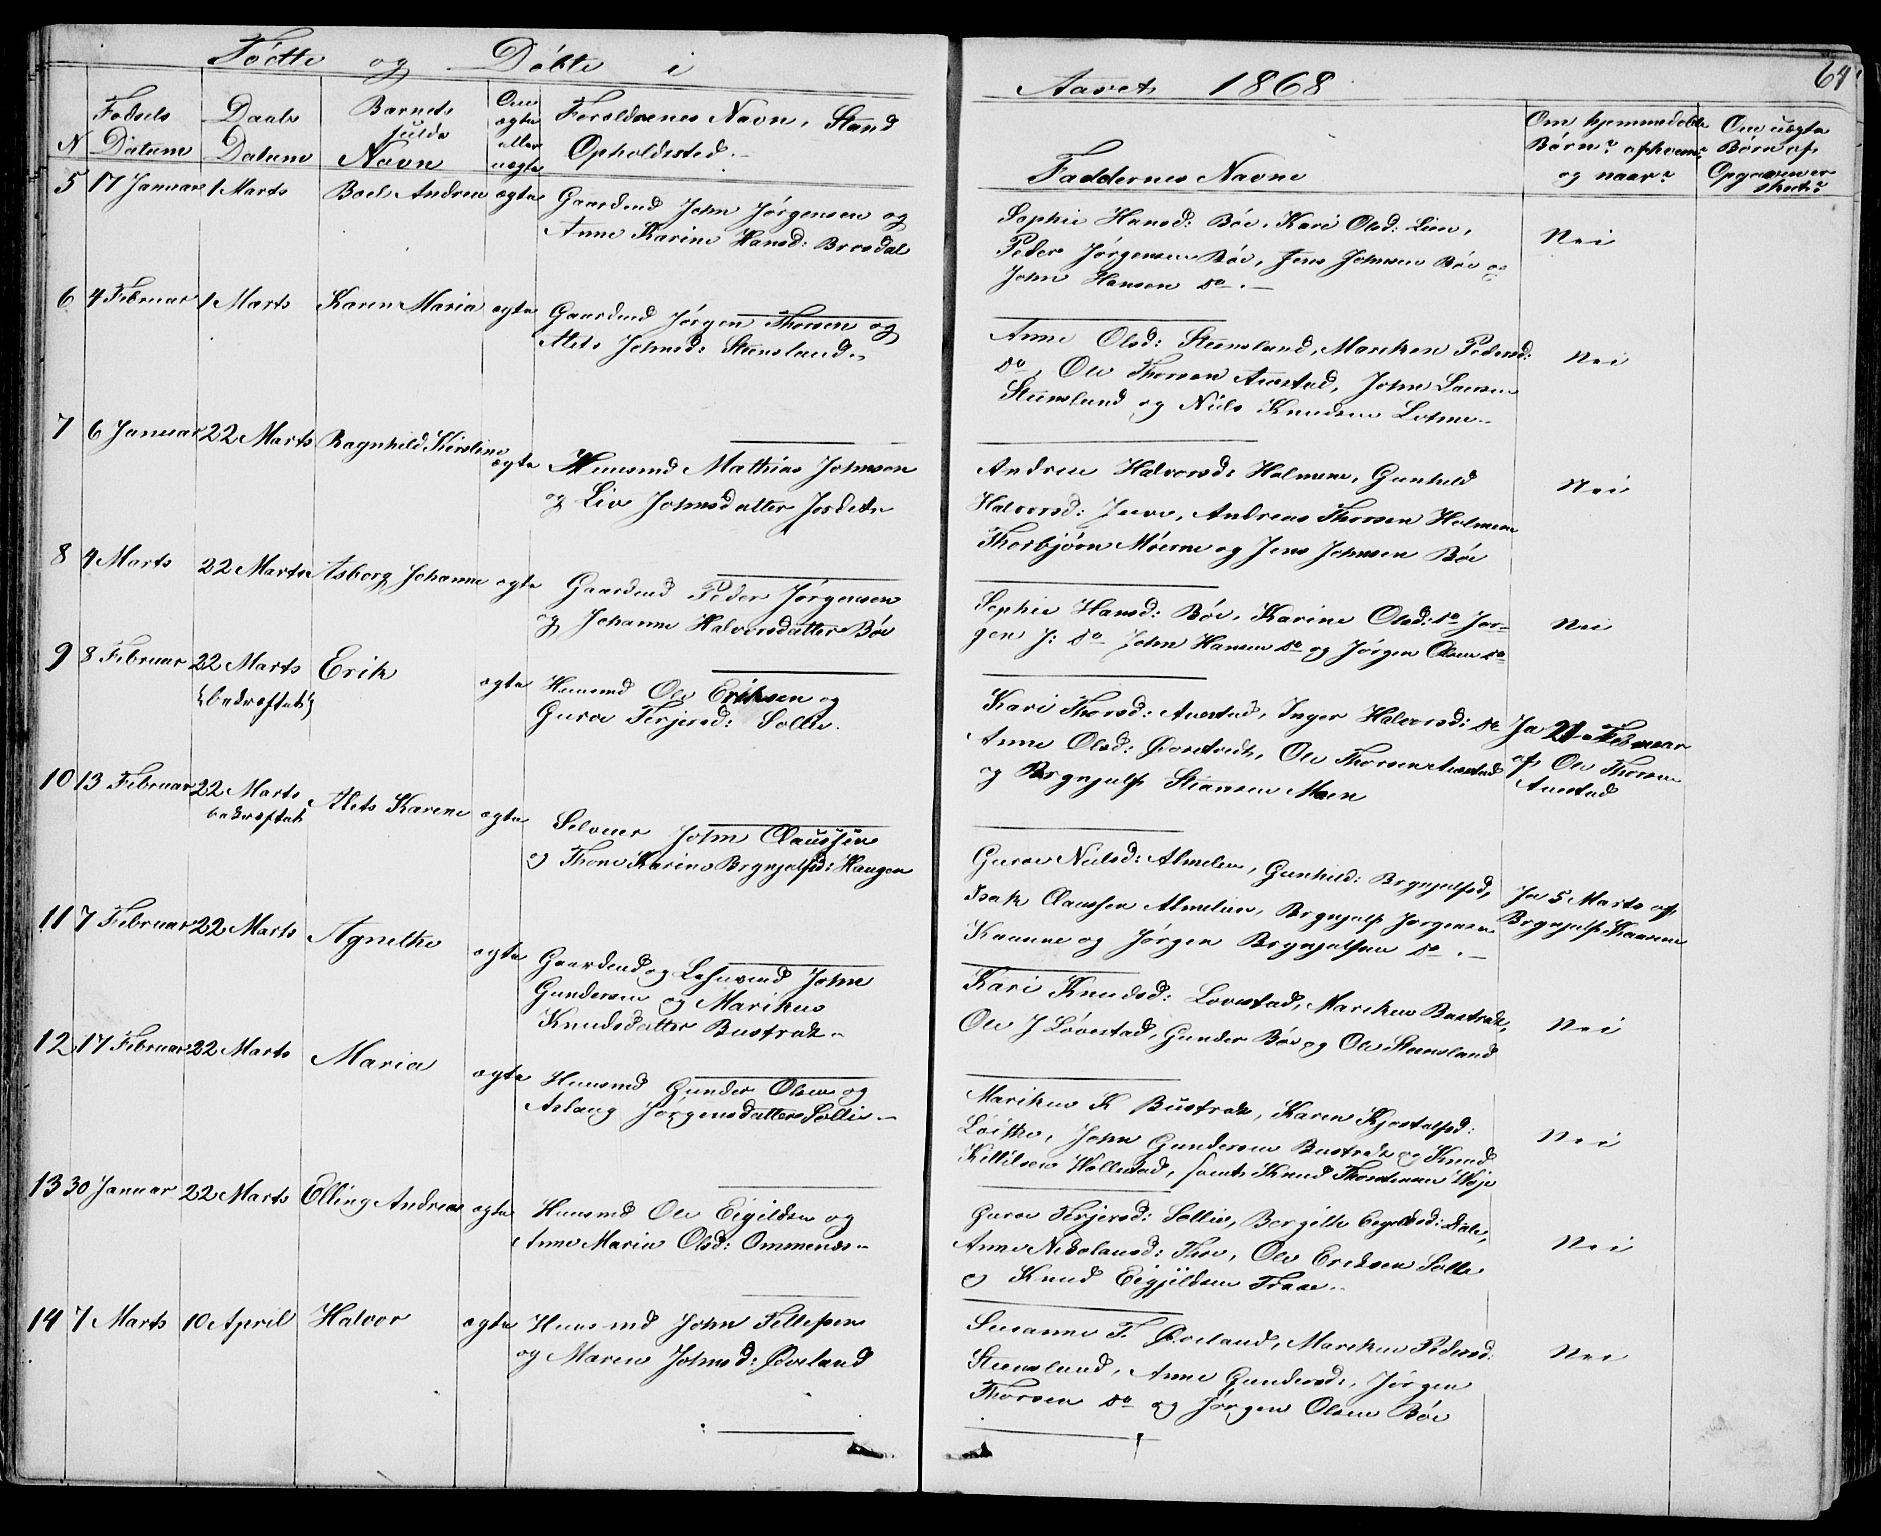 Födte og Döbte i
Aaret 1868
64
N
Födsels Datum
Daabs Datum
Barnets fulde Navn
Om ægte eller uægte
Forældrenes Navn, Stand
Opholdssted.
Faddernes Navne
Om hjemmedöbte
Börn? af hvem?
og naar?
Om uægte
Börn af
5 17 Januar 1 Marts Boel Andrea ægte
Gaardmd John Jørgensen og
Anne Karine Hansd: Brosdal
Sophie Hansd: Böe, Kari Olsd: Lien,
Peder Jörgensen Böe, Jens Johnsen Böe og
John Hansen do.
Nei
6 4 Februar 1 Marts Karen Maria ægte
Gaardmd Jørgen Thorsen og
Alets Johnsd: Steensland.
Anne Olsd: Steensland, Mareken Pedersd:
do, Ole Thorsen Auestad, John Larsen
Steensland og Niels Knudsen
Nei
7 6 Januar 22 Marts Ragnhild Kirstine ægte
Huusmd Mathias Johnson
og Liv Johnsdatter
Andrea Halvorsd: Holmene, Gunhild
Halvorsd: Juve, Andreas Thorsen Holmene
Thorbjörn Möerne og Jens Johnsen Böe
Nei
8 4 Marts 22 Marts Asborg Johanne ægte
Gaardmd Peder Jörgensen
og Johanne Halvorsdatter Böe
Sophie Hansd: Böe, Karine Olsd: do Jör-
gen J: do John Hansen do og Jörgen Olsen do
Nei
9 8 Februar 22 Marts Erik ægte
(bekræftet)
Huusmd Ole Eriksen og
Guroe Terjersd: Sollie.
Kari Thorsd: Auestad, Inger Halvorsd: do
Anne Olsd: Ole Thorsen Auestad
og Brynjulf Stiansen Moen
Ja 21 Februar
af Ole Thorsen
Auestad
10 13 Februar 22 Marts Alets Karene ægte
bekræftet
Selveier John Claussen
og Thone Karine Brynjulfsd: Haugen
Guroe Nielsd: Almelien, Gunhild: Brynjulfsd,
Isak Claussen Almelien, Brynjulf Jörgensen
Kaasene og Jörgen Brynjulfsen do.
Ja 5 Marts af
Brynjulf Kaasene
11 7 Februar 22 Marts Agnethe ægte
Gaardmd og John
Gundersen og Mariken
Knudsdatter Bustrak
Kari Knudsd: Lovestad, Mareken Bustrak,
Ole J Lövestad, Gunder Böe og Ole Steensland
Nei
12 17 Februar 22 Marts Maria ægte
Huusmd Gunder Olsen og
Aslaug Jörgensdatter Sollie
Mariken K Bustrak, Karen Kjostolfsd:
John Gundersen Bustrak og Knud
Kittilsen Wollestad, samt Knud Thorstensen
Nei
13 30 Januar 22 Marts Elling Andreas ægte
Huusmd Ole Eigildsen og
Anne Maria Olsd: Ommenæs
Guroe Terjersd: Sollie, Bergitte Eigildsd: Dale,
Anne Nikolausd: Ole Eriksen Sollie
og Knud Eigjildsen
Nei
14 7 Marts 10 April Halvor ægte
Huusmd John Tellefsen
og Maren Johnsd: Øveland
Susanne T. Øveland, Mareken Pedersd:
Steensland, Anne Gundersd:, Jörgen
Thorsen do og Jörgen Olsen Böe
Nei